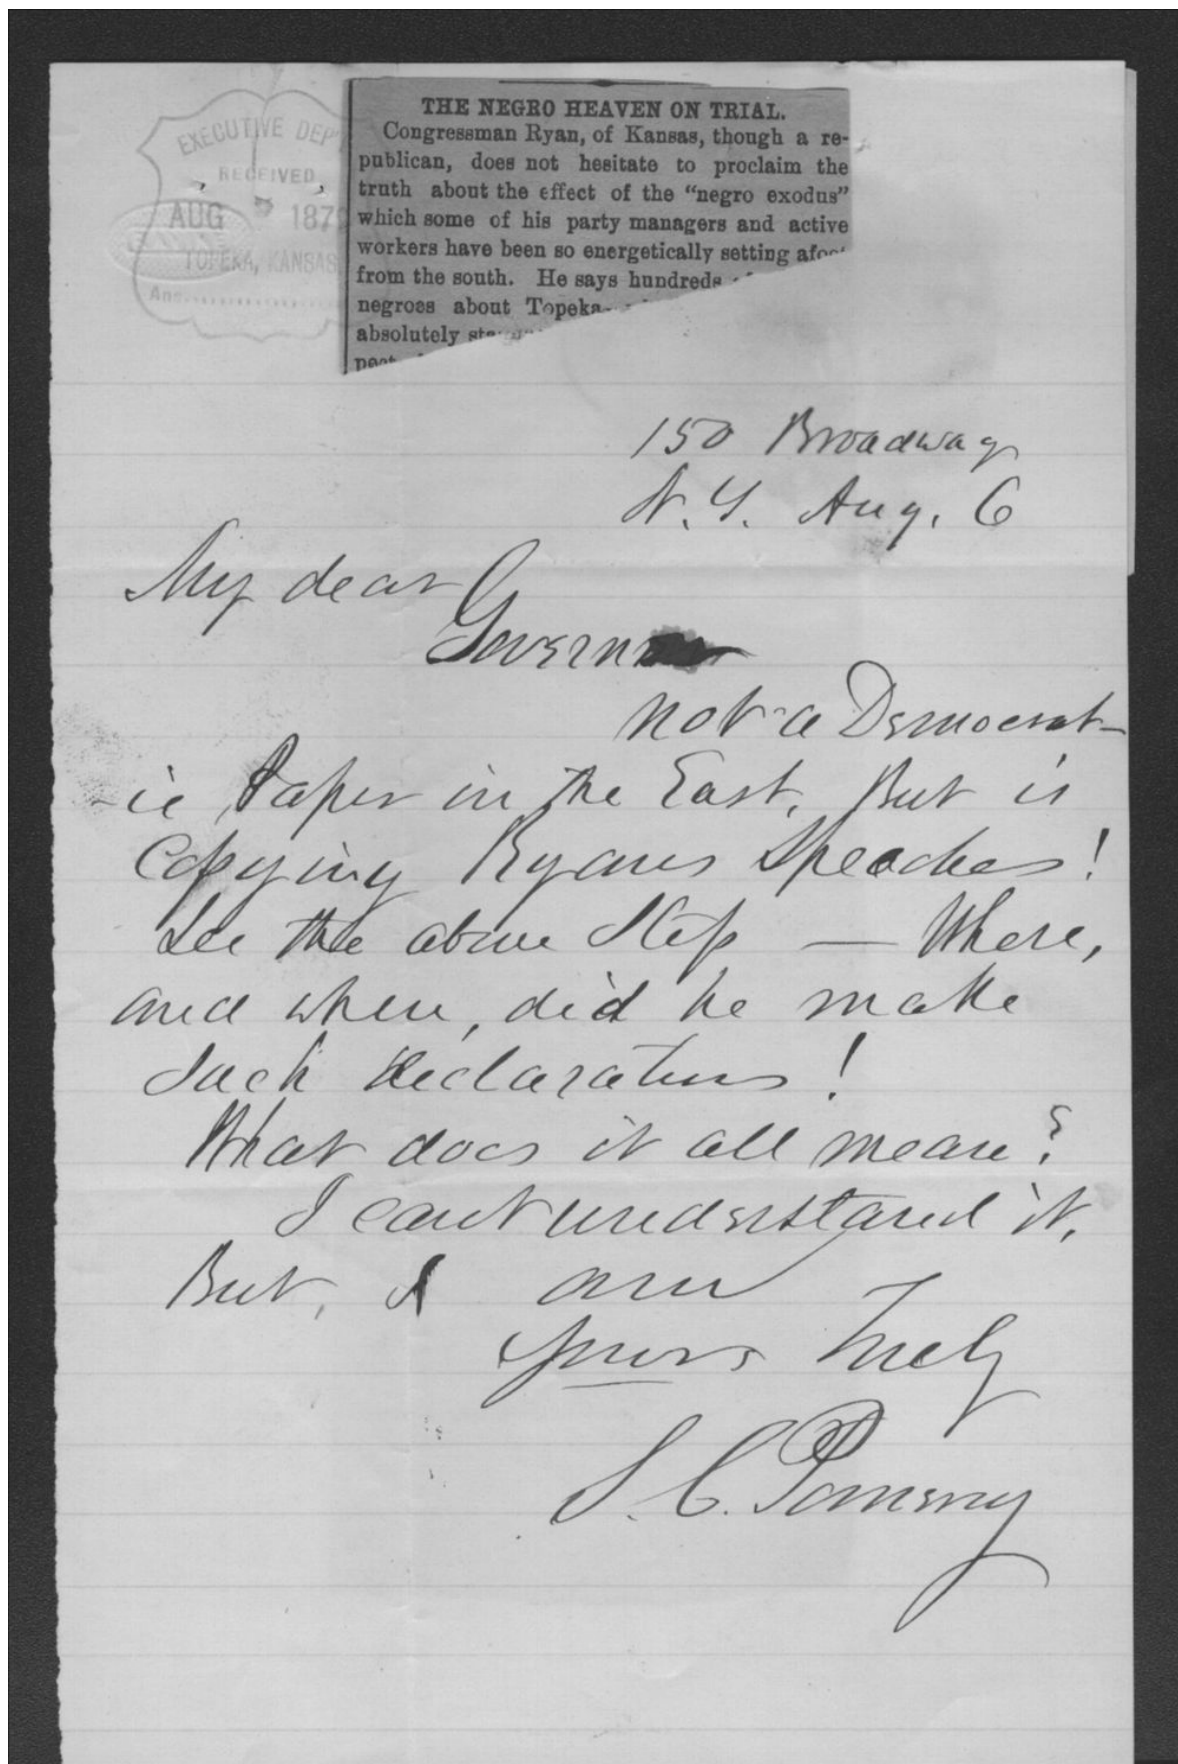 EXECUTIVE DEP
RECEIVED
AUG 187
TOPEKA, KANSAS
Ans
THE NEGRO HEAVEN ON TRIAL.
Congressman Ryan, of Kansas, though a re-
publican, does not hesitate to proclaim the
truth about the effect of the "negro exodus"
which some of his party managers and active
workers have been so energetically setting afoot
from the south. He says hundreds
negroes about Topeka
absolutely
150 Broadway
N.Y. Aug. 6
My dear
Governor
not a Democrat-
-ic Paper in the East, But is
Copying Ryans Speeches!
See the above Slip — Where,
and when, did he make
Such declarations!
What does it all mean?
I cant understand it,
But, I am
Yours Truly
S. C. Pomeroy